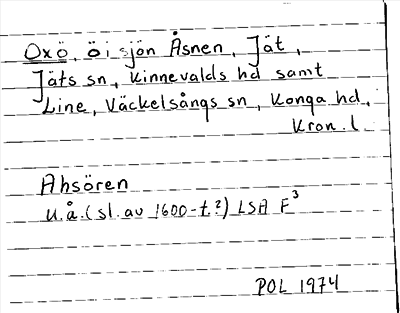 Oxö, ö i sjön Åsnen, Jät,
Jäts sn, Kinnevalds hd samt
Line, Väckelsångs sn, Konga hd,
Kron. l.
Ahsören
u.å. (sl. av 1600-t.?) LSA F³
POL 1974